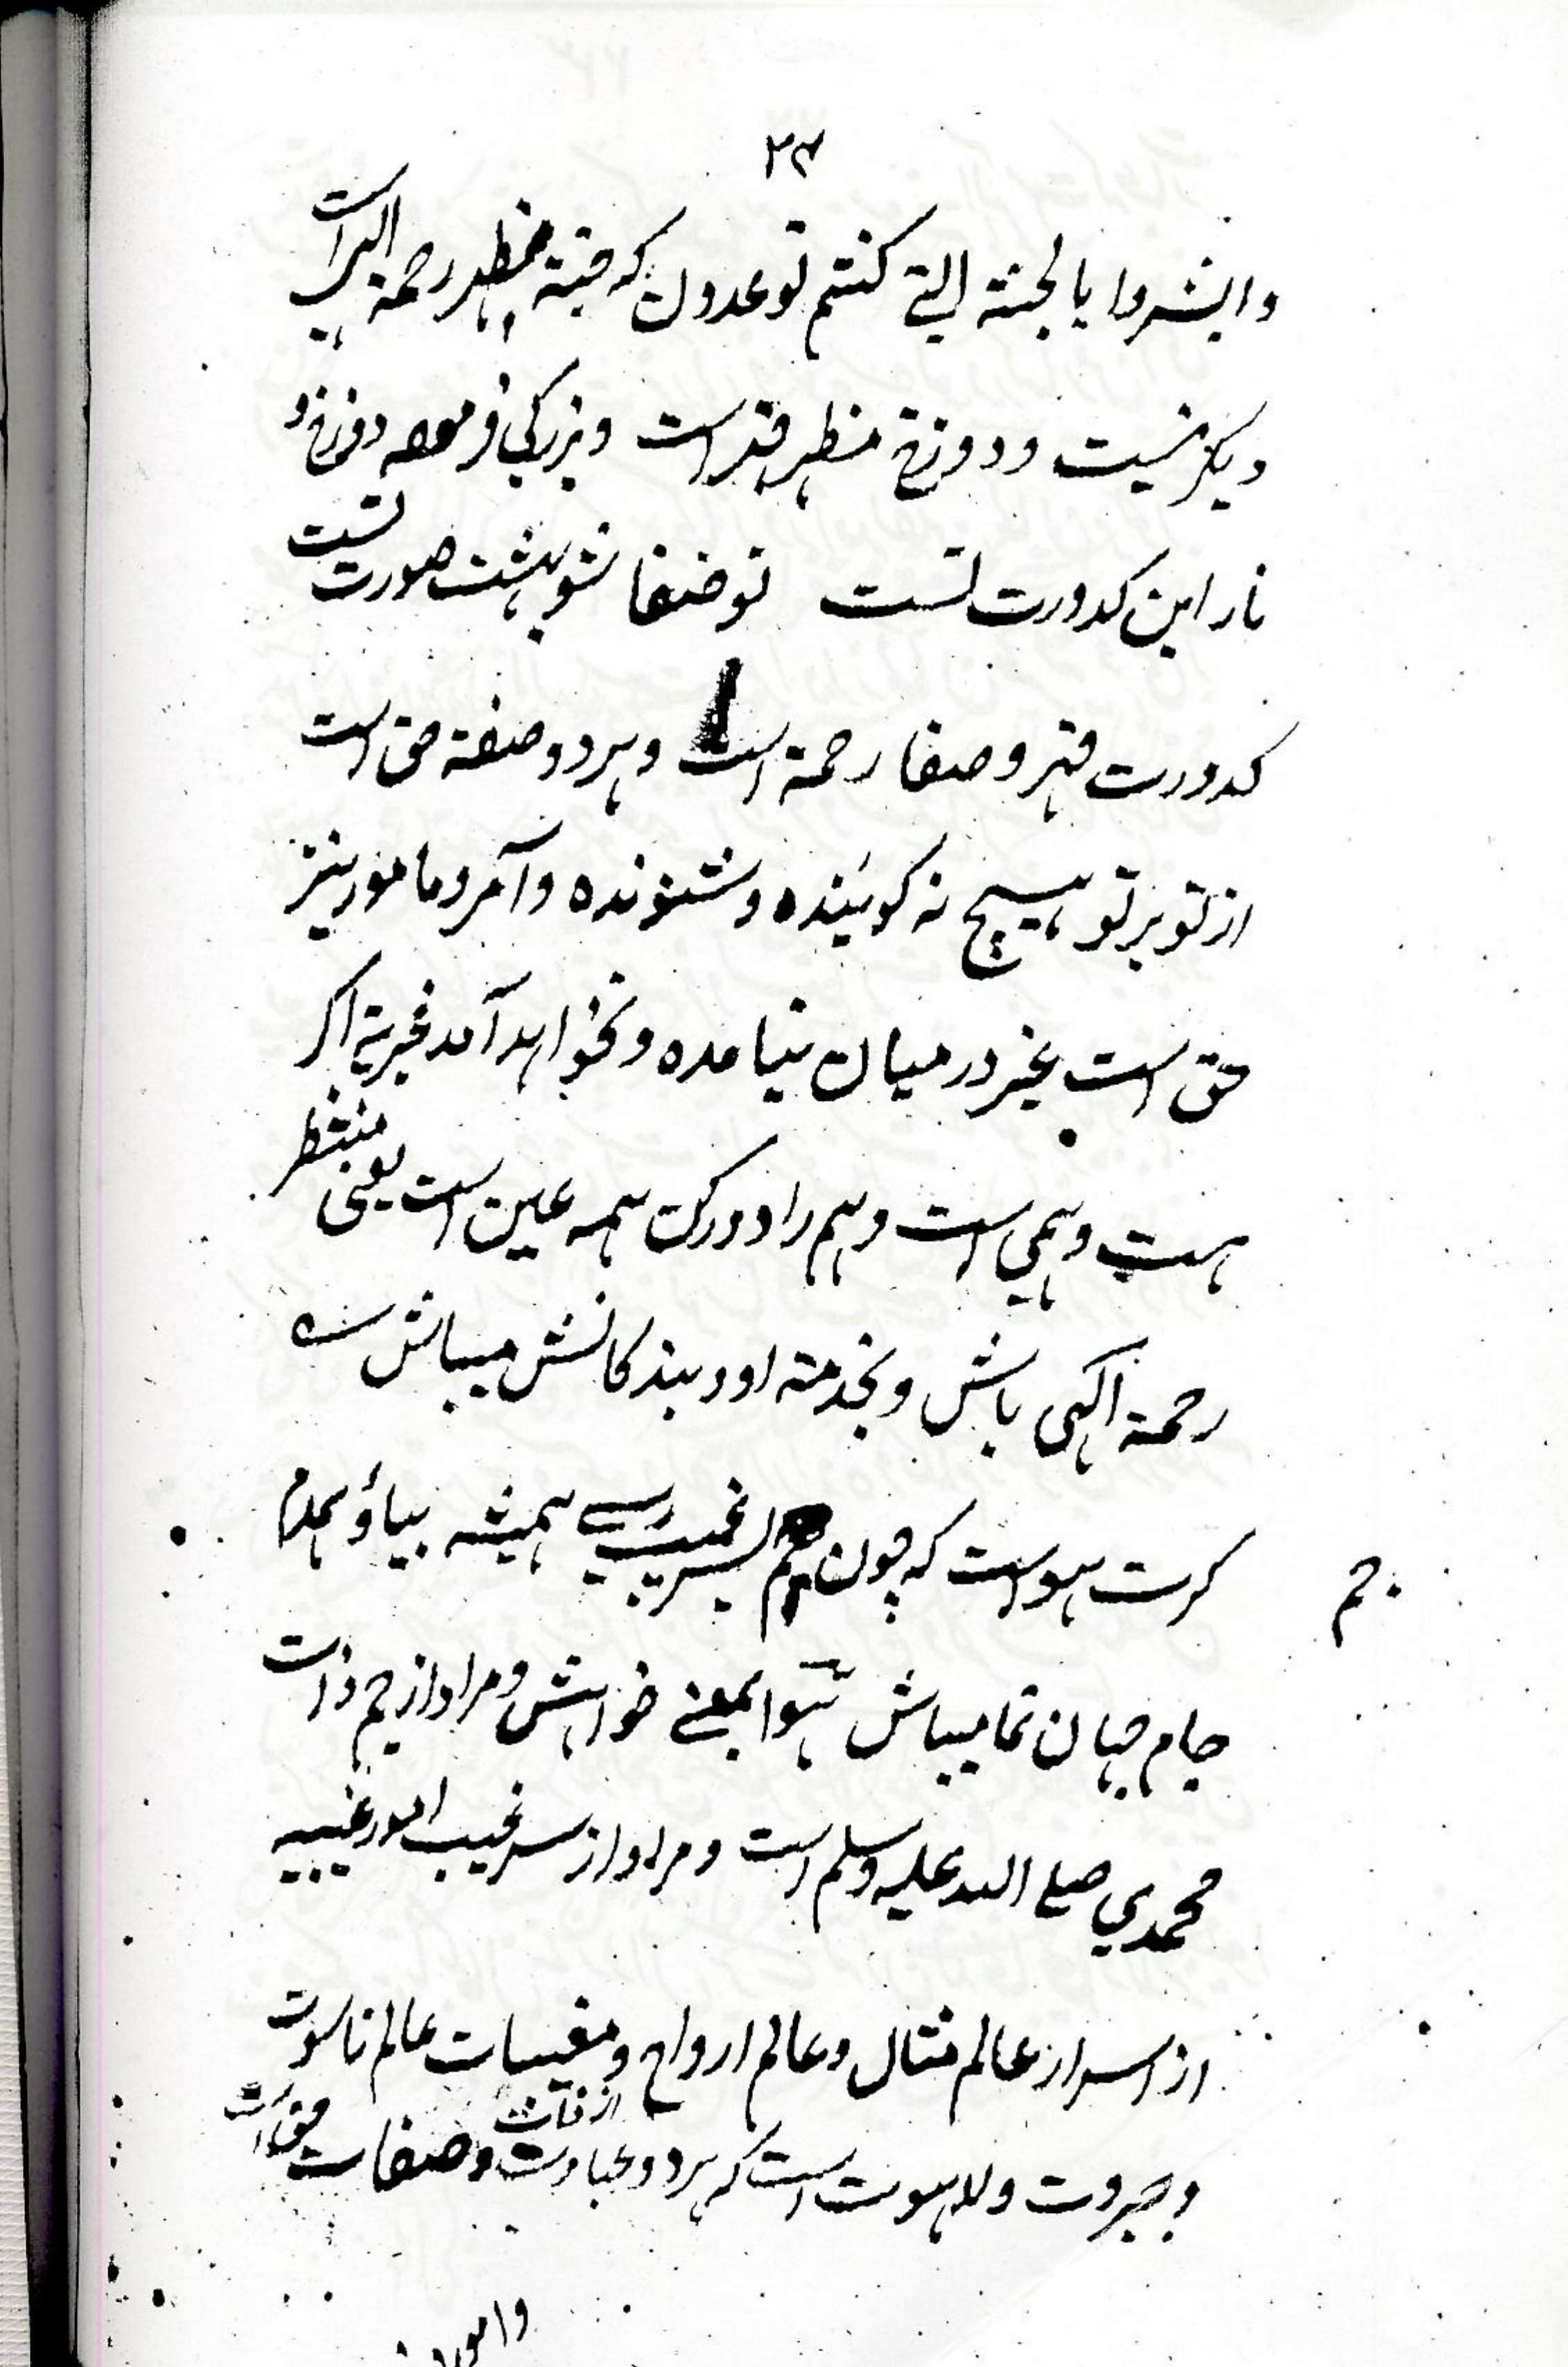 ۲۳
وابشروا بالجنة التي كنتم توعدون که جنة مظهر رحمة الہیہ است
دیگر نیست و دوزخ مظهر قهر است و بزرگی فرموده دوزخ و
نار این کدورت تست تو صفا شو بهشت صورت تست
کدورت قهر و صفا رحمة است و هر دو صفة حق است
از تو بر تو هیچ نه گوینده و شنونده و آمر و مامور نیز
حق است غیر درمیان نیامده و نخواهد آمد غیریة اگر
هست وهمی است وهم را دور کن همه عین است یعنی منتظر
رحمة الٰهی باش و بخدمة او و بندکانش میباش
کرت هواست که چون جم بسر غیب رسے همیشه بیا و همدم
جم
جام جهان نما میباش هوا بمعنے خواهش و مراد از جم ذات
محمدي صلے الله علیه وسلم است و مراد از سر غیب امور غیبیه
از اسرار عالم مثال و عالم ارواح و مغیبات عالم ناسوت
و جبروت و لاهوت است که هر دو عبارت از ذات و صفات حق است
وامور